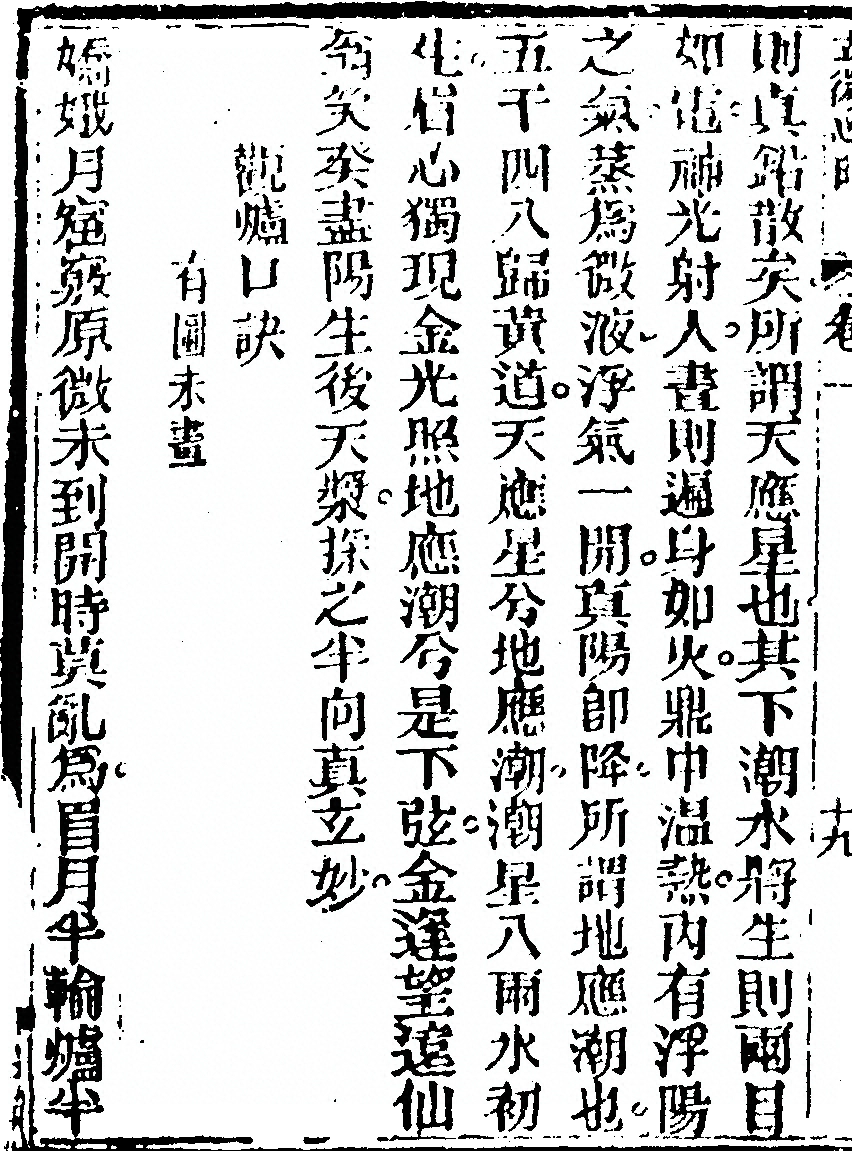 卷一
十九
則真鉛散矣所謂天應星也其下潮水將生則兩目
如電神光射人晝則遍身如火鼎中溫熱內有浮陽
之氣蒸為微液浮氣一開真陽卽降所謂地應潮也
五千四八歸黃道天應星兮地應潮潮星八兩水初
生眉心獨現金光照地應潮兮是下弦金逢望遠仙
翁笑癸盡陽生後天漿採之半向真玄妙
觀爐口訣
有圖未畫
嬌娥月窟竅原微未到開時莫亂為眉月半輪爐半